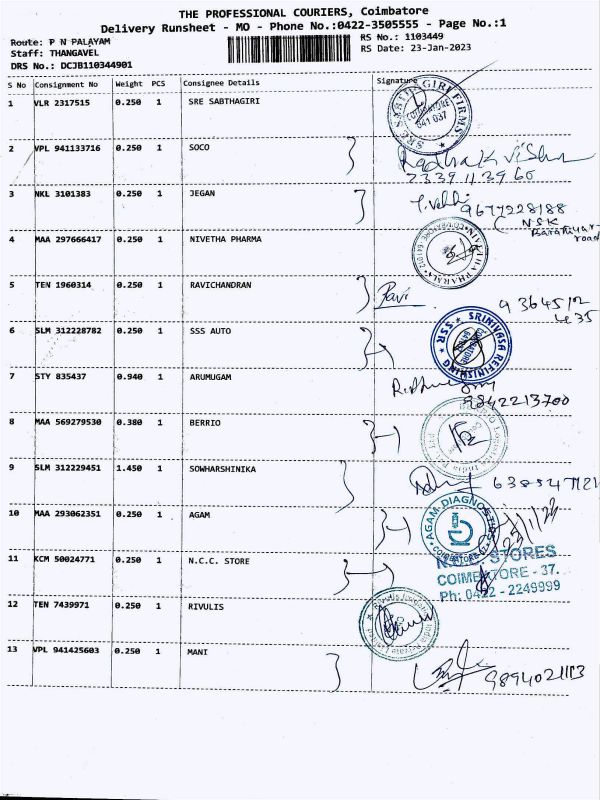 THE PROFESSIONAL COURIERS, Coimbatore
Delivery Runsheet - MO - Phone No.:0422-3505555 - Page No.:1
Route: P N PALAYAM
Staff: THANGAVEL
DRS No.: DCJB110344901
RS No.: 1103449
RS Date: 23-Jan-2023
S No Consignment No Weight PCS Consignee Details Signature
1 VLR 2317515 0.250 1 SRE SABTHAGIRI
SRE SABTHAGIRI FIRMS COIMBATORE 641 037
2 VPL 941133716 0.250 1 SOCO
Radhakrishnan
2339113960
3 NKL 3101383 0.250 1 JEGAN
9677228188
NSK
Barathiyar
road
4 MAA 297666417 0.250 1 NIVETHA PHARMA
NIVETHA PHARMA
5 TEN 1960314 0.250 1 RAVICHANDRAN
Ravi
9364512
435
6 SLM 312228782 0.250 1 SSS AUTO
SRINIVASA REFINISHING SSR
7 STY 835437 0.940 1 ARUMUGAM
9842213700
8 MAA 569279530 0.380 1 BERRIO
9 SLM 312229451 1.450 1 SOWHARSHINIKA
10 MAA 293062351 0.250 1 AGAM
AGAM DIAGNOSTICS
COIMBATORE
11 KCM 50024771 0.250 1 N.C.C. STORE
N.C.C. STORES
COIMBATORE - 37.
Ph: 0422 - 2249999
12 TEN 7439971 0.250 1 RIVULIS
Rivulis Irrigation India Private Limited
13 VPL 941425603 0.250 1 MANI